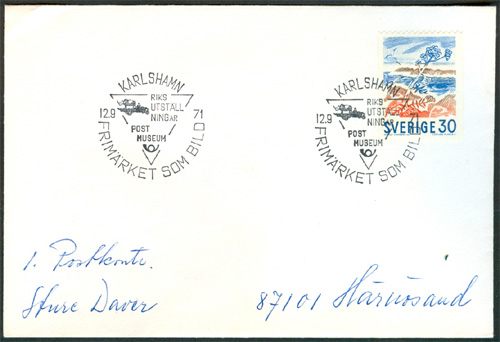 KARLSHAMN
RIKS
UTSTÄLL
NINGAR
12.9 71
POST
MUSEUM
FRIMÄRKET SOM BILD
KARLSHAMN
RIKS
UTSTÄLL
NINGAR
12.9 71
POST
MUSEUM
FRIMÄRKET SOM BILD
SVERIGE 30
1. Postkonto.
Sture Daver
87101 Härnösand